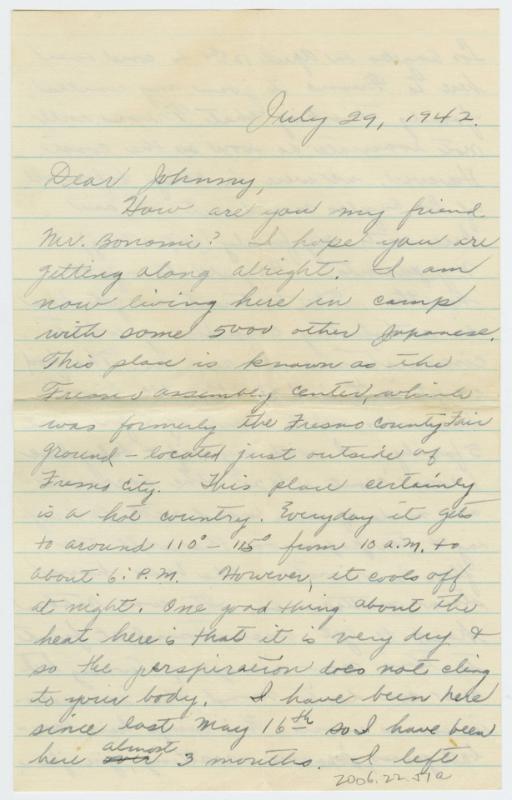 July 29, 1942.
Dear Johnny,
How are you my friend
Mr. Bonomi? I hope you are
getting along alright. I am
now living here in camp
with some 5000 other Japanese.
This place is known as the
Fresno assembly center, which
was formerly the Fresno County Fair
ground - located just outside of
Fresno City. This place certainly
is a hot country. Everyday it gets
to around 110° - 115° from 10 a.m. to
about 6: P.M. However, it cools off
at night. One good thing about the
heat here is that it is very dry &
so the perspiration does not cling
to your body. I have been here
since last May 16th so I have been
almost
here over 3 months. I left
2006.22.51a